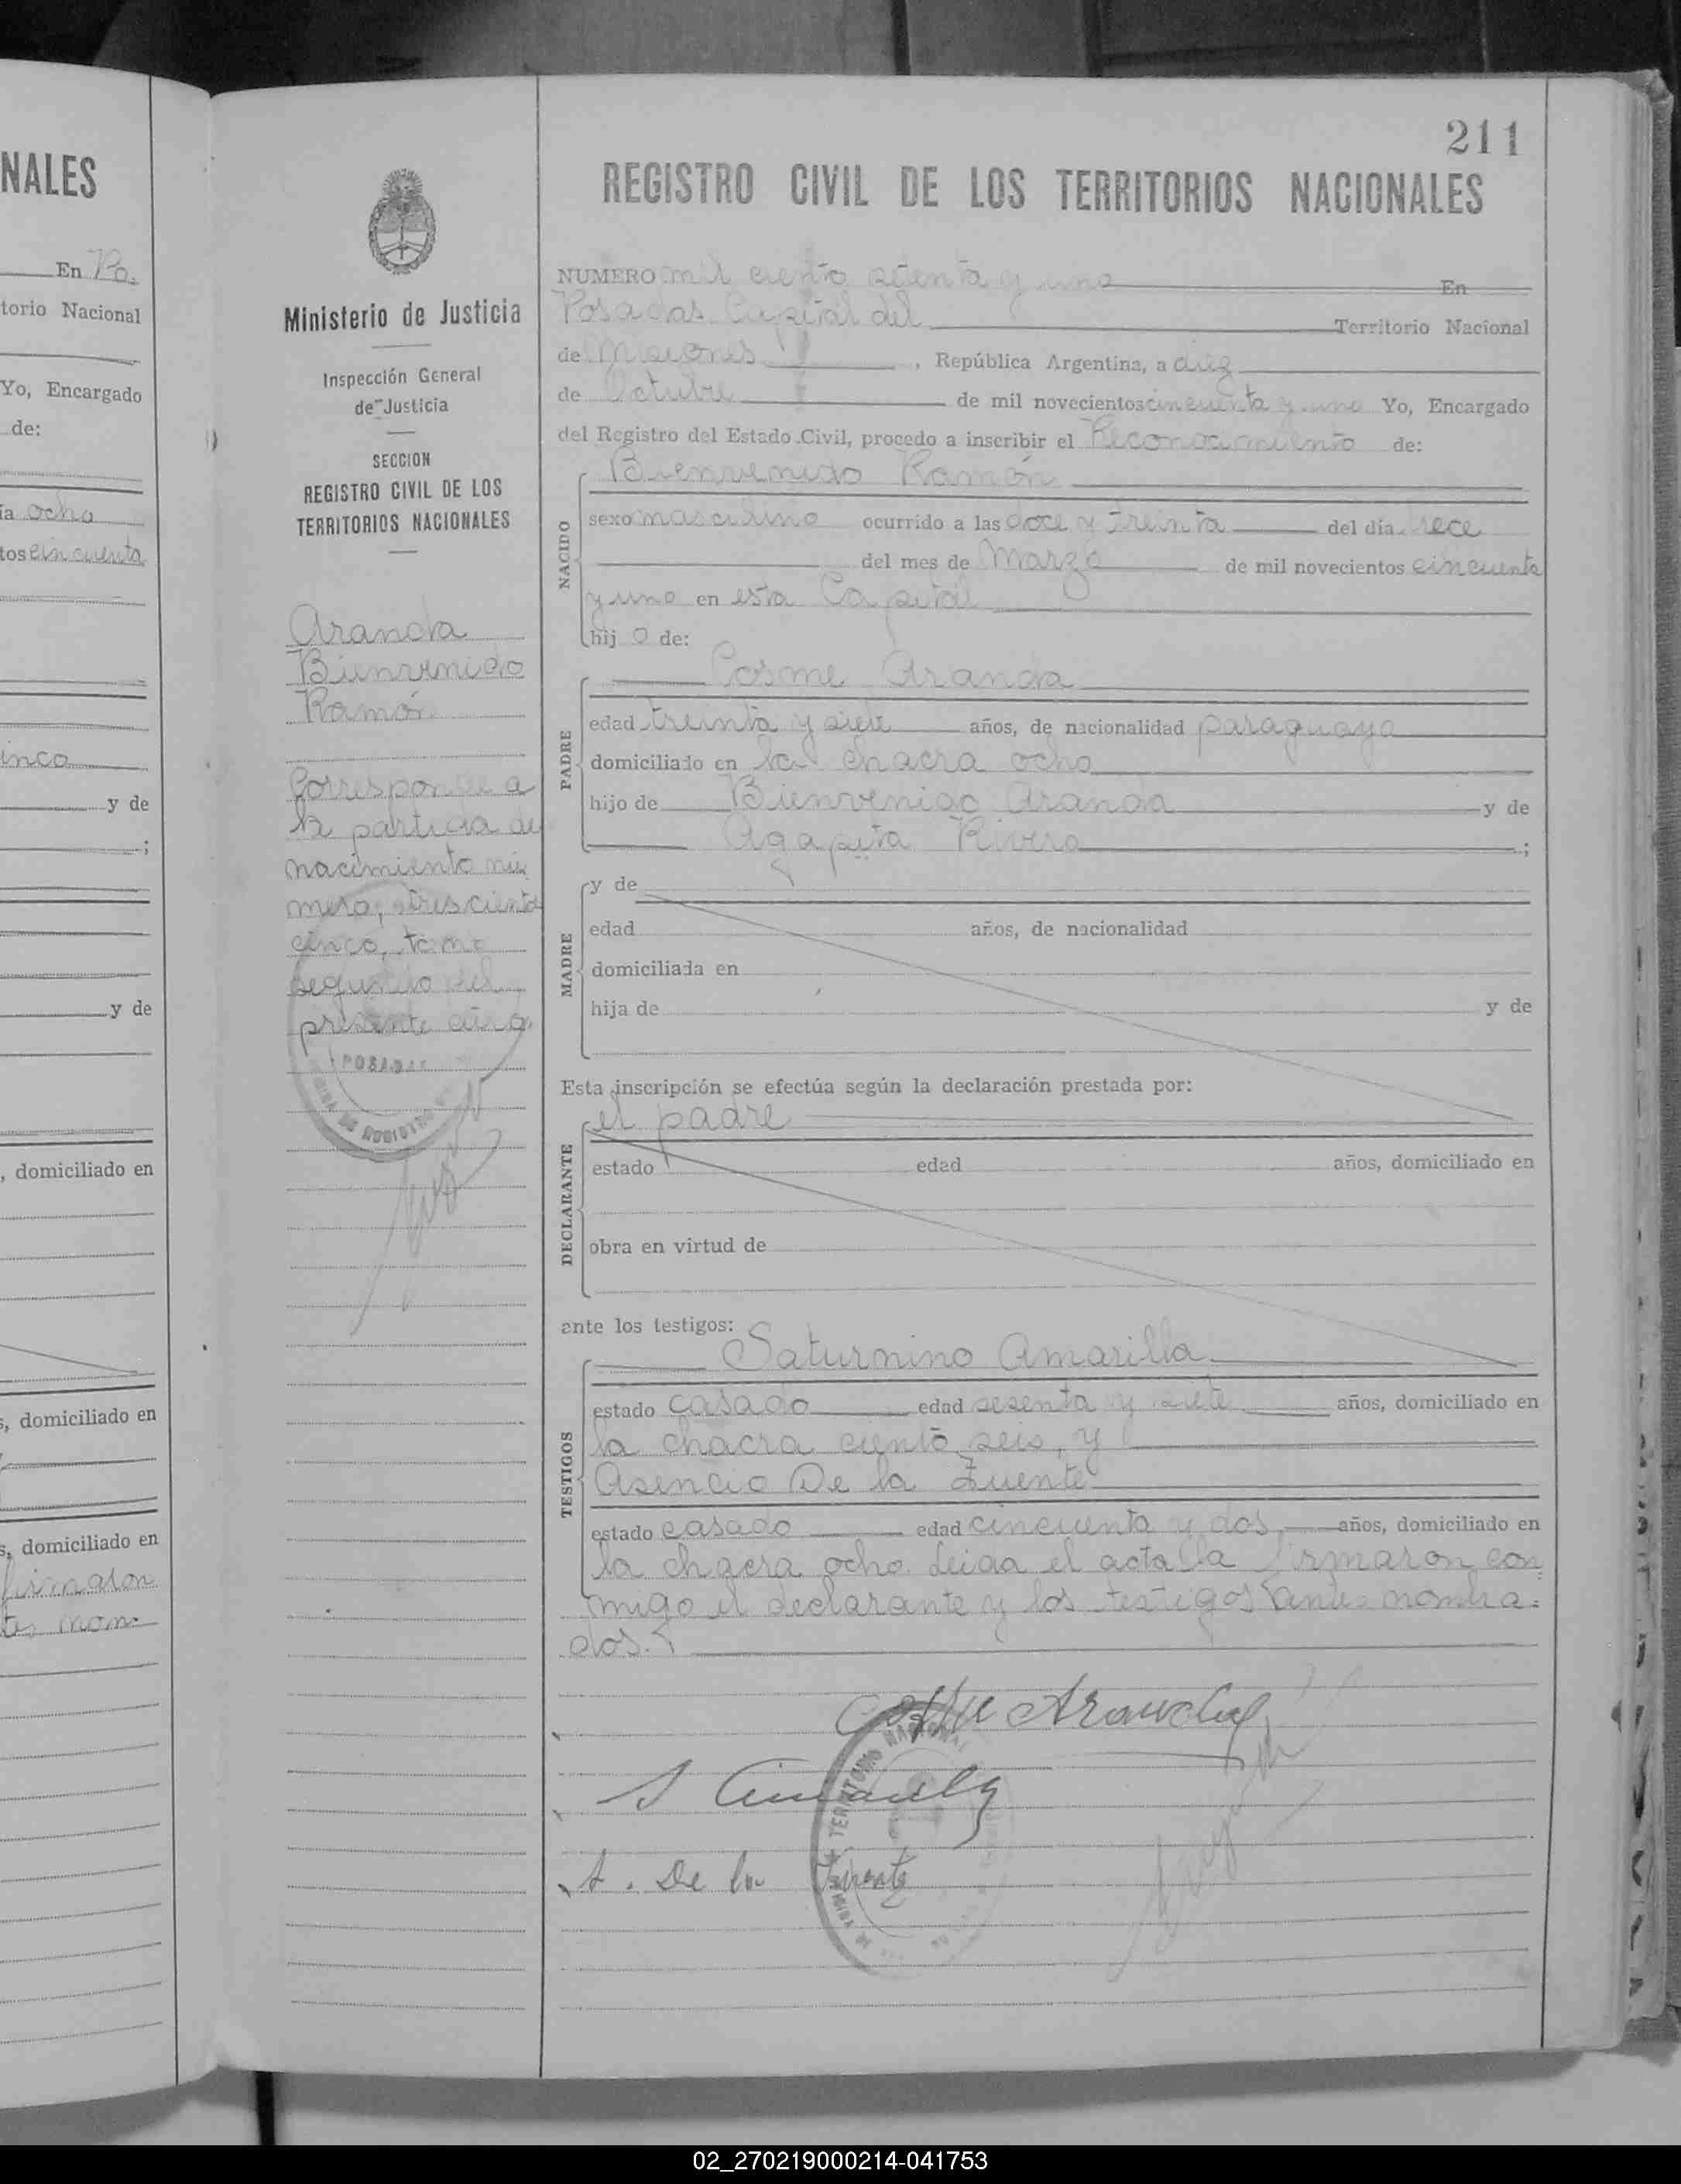 NALES
En Po.
torio Nacional
Yo, Encargado
de:
ía ocho
tos cincuenta
inco
y de
;
y de
, domiciliado en
s, domiciliado en
s, domiciliado en
firmaron
tes nom-
Ministerio de Justicia
Inspección General
de Justicia
SECCION
REGISTRO CIVIL DE LOS
TERRITORIOS NACIONALES
Aranda
Bienvenido
Ramón
Corresponde a
la partida de
nacimiento nú
mero, trescientos
cinco, tomo
segundo del
presente año.
POSADAS
211
REGISTRO CIVIL DE LOS TERRITORIOS NACIONALES
NUMERO mil ciento setenta y uno En
Posadas Capital del Territorio Nacional
de Misiones, República Argentina, a diez
de Octubre de mil novecientos cincuenta y uno Yo, Encargado
del Registro del Estado Civil, procedo a inscribir el Reconocimiento de:
Bienvenido Ramón
NACIDO
sexo masculino ocurrido a las doce y treinta del día trece
del mes de Marzo de mil novecientos cincuenta
y uno en esta Capital
hij o de:
Cosme Aranda
PADRE
edad treinta y siete años, de nacionalidad paraguaya
domiciliado en la chacra ocho
hijo de Bienvenido Aranda y de
Agapita Rivero ;
MADRE
y de
edad años, de nacionalidad
domiciliada en
hija de y de
Esta inscripción se efectúa según la declaración prestada por:
el padre
DECLARANTE
estado edad años, domiciliado en
obra en virtud de
ante los testigos:
Saturnino Amarilla
TESTIGOS
estado casado edad sesenta y siete años, domiciliado en
la chacra ciento seis, y
Asencio De la Fuente
estado casado edad cincuenta y dos años, domiciliado en
la chacra ocho. Leida el acta la firmaron con
migo el declarante y los testigos antes nombra-
dos.
Cosme Aranda
S Amarilla
A. De la Fuente
TERRITORIO NACIONAL
02_270219000214-041753